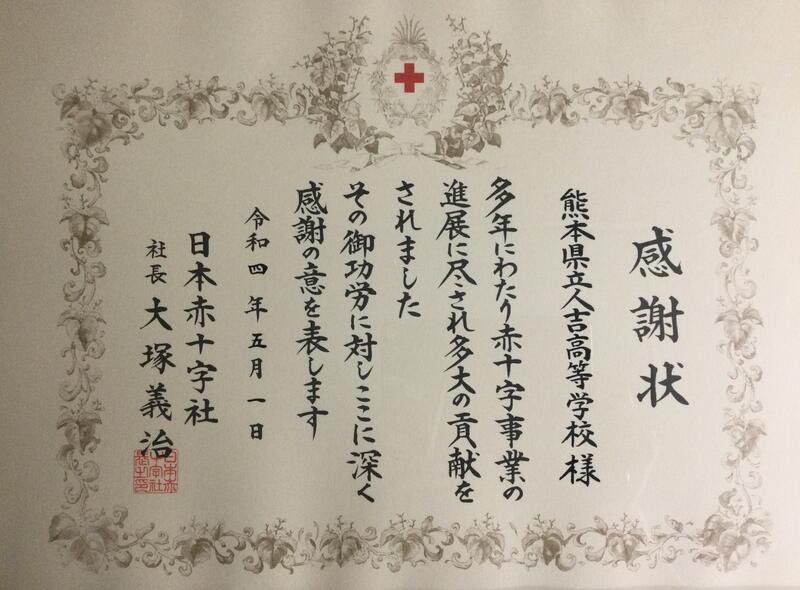 感謝状
熊本県立人吉高等学校様
多年にわたり赤十字事業の
進展に尽され多大の貢献を
されました
その御功労に対しここに深く
感謝の意を表します
令和四年五月一日
日本赤十字社
社長 大塚義治
日本赤
十字社
長之印